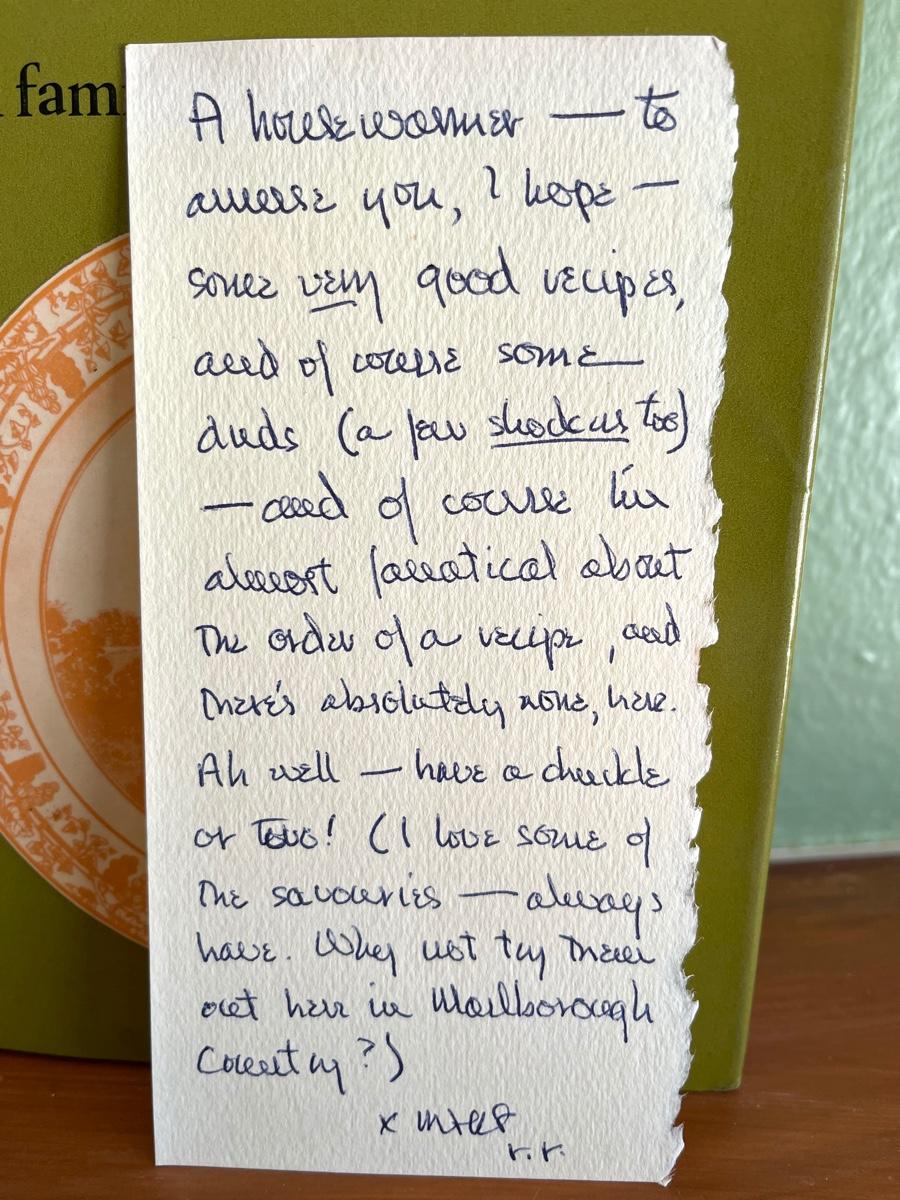 fam
A housewarmer — to
amuse you, I hope —
some very good recipes,
and of course some
duds (a few shockers too)
— and of course I'm
almost fanatical about
the order of a recipe, and
there's absolutely none, here.
Ah well — have a chuckle
or two! (I love some of
the savouries — always
have. Why not try them
out here in Marlborough
Country?)
x
r.r.